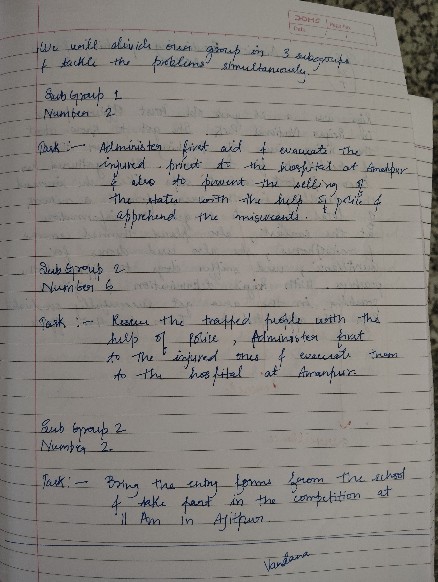 DOMS
We will divide our group in 3 subgroups
& tackle the problems simultaneously.
Sub Group 1
Number 2
Task :- Administer first aid & evacuate the
injured priest to the hospital at Amanpur
& also to prevent the selling of
the states with the help of police &
apprehend the miscreants.
Sub Group 2
Number 6
Task :- Rescue the trapped people with the
help of police, Administer first
to the injured ones & evacuate them
to the hospital at Amanpur
Sub Group 2
Number 2.
Task :- Bring the entry forms from the school
& take part in the competition at
11 Am in Ajitpur
Vandana